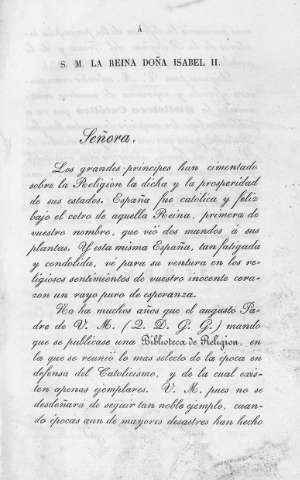 Á
S. M. LA REINA DOÑA ISABEL II.
Señora.
Los grandes príncipes han cimentado
sobre la Religion la dicha y la prosperidad
de sus estados. España fue católica y feliz
bajo el cetro de aquella Reina, primera de
vuestro nombre, que vió dos mundos á sus
plantas. Y esta misma España, tan fatigada
y condolida, vé para su ventura en los re-
ligiosos sentimientos de vuestro inocente cora-
zon un rayo puro de esperanza.
No ha muchos años que el augusto Pa-
dre de V. M. (Q. D. G. G.) mandó
que se publicase una Biblioteca de Religion, en
la que se reunió lo mas selecto de la época en
defensa del Catolicismo, y de la cual exis-
ten apenas ejemplares. V. M. pues no se
desdeñará de seguir tan noble ejemplo, cuan-
do épocas aun de mayores desastres han hecho